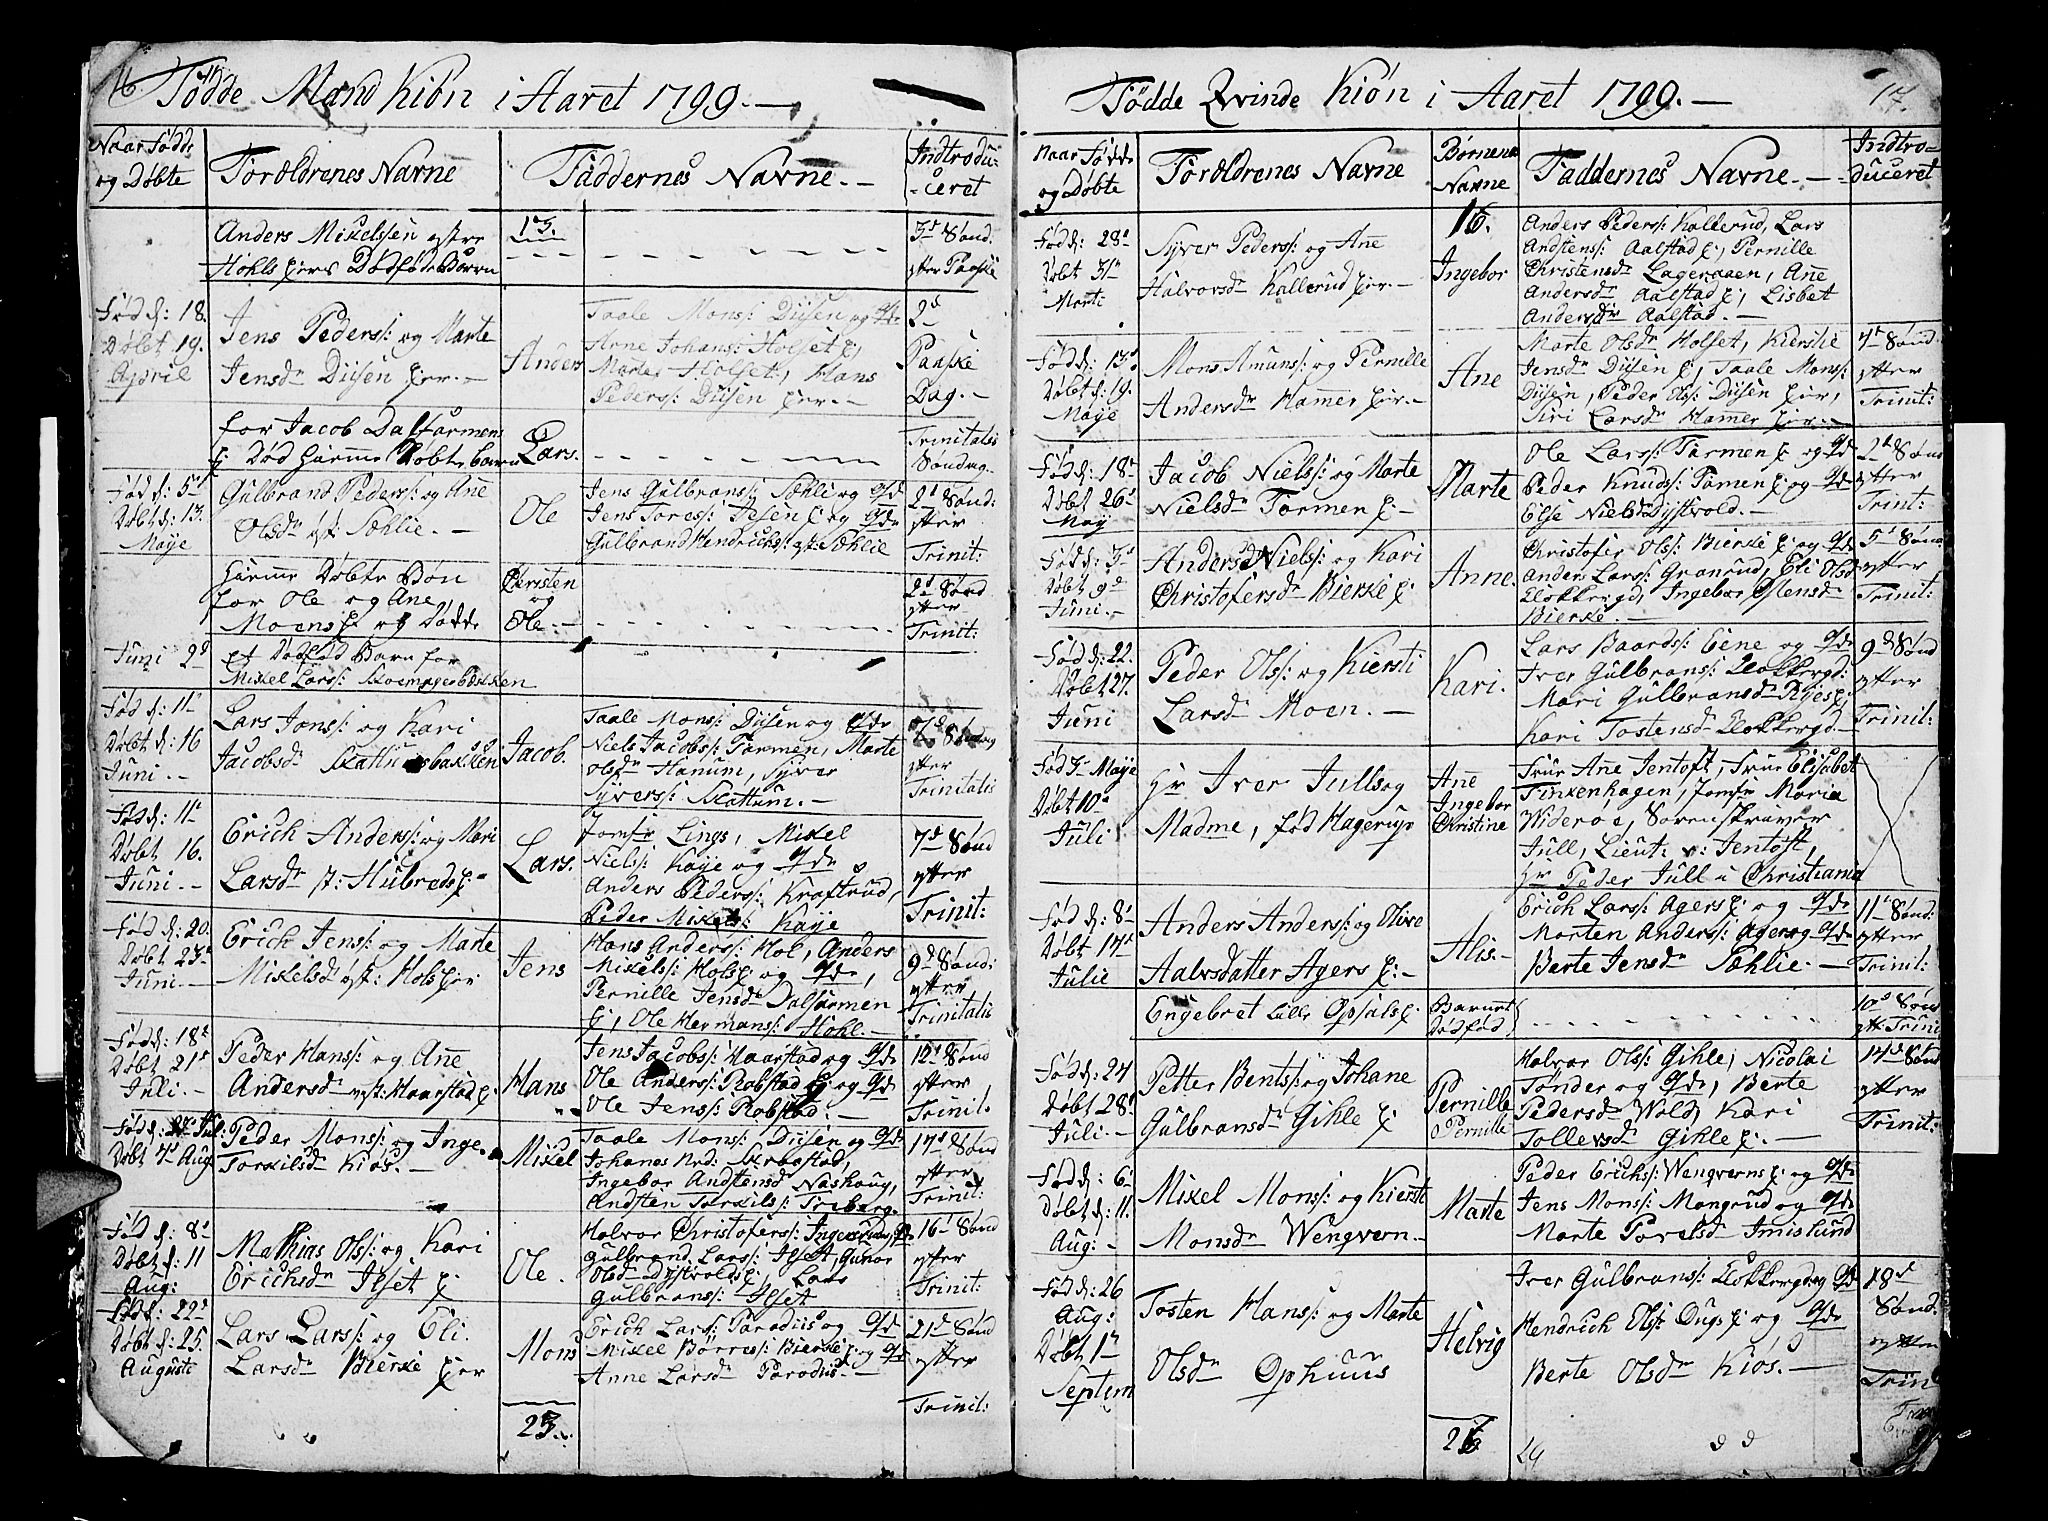 16.
Fødde Mand Kiön i Aaret 1799. —
Naar Fødde
og Døbte
Forældrenes Navne
Faddernes Navne. —
Indtrodu-
ceret
Anders Mikelssen østre
Hohls eiers Dødføde Børn
13.
3d Sønd:
efter Paaske
Fød d: 18.
Døbt 19.
April
Jens Peders: og Marte
Jensdr Diisen eier. —
Anders
Taale Mons: Diisen og qde
Arne Johans: Holset e:
Holset, Hans
Peders: Diisen eier. —
2d
Paaske
Dag. —
for Jacob Dalsarmens
e: Død hiemme Døbte barn
Lars.
Trinitatis
Søndag.
Fød d: 5te
Døbt d: 13.
Maye
Gulbrand Peders: og Ane
Olsdr øst: Sæhlie. —
Ole
Jens Gulbrans: Sæhli og qde
Jens Tores: Diesen e: og qde
Gulbrand Hendrichs: øst: Sæhlie
2d Sønd:
efter
Trinit:
hiemme Døbte Bøn
for Ole og Ane
Moens e: og Dødde
Christen
og
Ole. —
2d Sønd
efter
Trinit:
Juni 2d
et Dødfød Barn for
Mikel Lars: Skoemagerbakken
Fød d: 11te
Døbt d: 16
Juni. —
Lars Jons: og Kari
Jacobsdr Skattumsbakken
Jacob.
Taale Mons: Diisen og qde
Niels Jacobs: Farmen, Marte
Olsdr Hanum, Syver
Syvers: Skattum. —
7d Søndag
efter
Trinitatis
Fød d: 11te
Døbt 16.
Juni. —
Erich Anders: og Mari
Larsdr st: Hubreds e:
Lars.
Jomfr Lings, Mikel
Niels: Kaye og qde
Anders Peders: Kraftrud,
Peder Mikels: Kaye
7d Sønd
efter
Trinit:
Fød d: 20.
Døbt 23d
Juni. —
Erich Jens: og Marte
Mikelsdr øst: Hols eier
Jens
Hans Anders: Hol, Anders
Mikels: Hols e: og qde,
Pernille Jensdr Dalsarmen
e:, Ole Hermans: Hohl. —
9d Sønd:
efter
Trinitatis
Fød d: 18d
Døbt 21d
Juli. —
Peder Hans: og Ane
Andersdr øst: Haarstad e:
Hans
Jens Jacobs: Haarstad og qde
Ole Anders: Robstad e: og qde
Ole Jens: Robstad: —
12d Sønd
efter
Trinit.
Døbt 4d Aug
Peder Mons: og Inge
Torkilsdr Kiös. —
Mikel
Taale Mons: Diisen og qde
Johanes Skrebstad,
Ingebor Andtensdr Nashoug,
Andsten Torkils: Friberg.
17d Sønd
efter
Trinit:
Fød d: 8d
Døbt d: 11
Aug:
Mathias Ols: og Kari
Erichsdr Ilset e:
Ole.
Halvor Christofers: Ingersrud, qde
Gulbrand Lars: Ilset, Gunor
Olsdr Dystvolds e:, Lars
Gulbrans: Ilset
16d Sønd
efter
Trinit:
Fød d: 22d
Døbt d: 25.
Augusti
Lars Lars: og Eli
Larsdr Bierke eier
Mons
Erich Lars: Paradiis og qde
Mikel Børres: Bierke e: og qde
Anne Larsdr Paradiis. —
21d Sønd
efter
Trinit:
23.
17.
Fødde Qvinde Kiön i Aaret 1799. —
Naar Fødde
og Døbte
Forældrenes Navne
Børnenes
Navne
Faddernes Navne. —
Indtro-
duceret
Fød d: 28d
Døbt 31te
Marti:
Syver Peders: og Ane
Halvorsdr Kallerud eier. —
16.
Ingebor
Anders Peders: Kallerud, Lars
Andstens: Aalstad e:, Pernille
Christensdr Lageraaen, Ane
Andersdr Aalstad e:, Lisbet
Andersdr Aalstad. —
Fød d: 13d
Døbt d: 19.
Maye
Mons Amuns: og Pernille
Andersdr Hamer eier. —
Ane
Marte Olsdr Holset, Kierstie
Jensdr Diisen e:, Taale Mons:
Diisen, Peder Ols: Diisen eier,
Siri Larsdr Hammer eier. —
7d Sønd
efter
Trinit:
Fød d: 18d
Døbt 26d
May
Jacob Niels: og Marte
Nielsdr Farmen e: —
Marte
Ole Lars: Farmen e: og qde
Peder Knuds: Famen e: og qde
Else Nielsdr Dystvold. —
2d Sønd
efter
Trinit:
Fød d: 3d
Døbt 9d
Juni. —
Anders Niels: og Kari
Christofersdr Bierke e:
Anne.
Christofer Ols: Bierke e: og qde
Anders Lars: Granrud, Eli Olsdr
Klokkergd, Ingebor Ostensdr
Bierke. —
5d Sønd
efter
Trinit:
Fød d: 22.
Døbt 27.
Juni
Peder Ols: og Kiersti
Larsdr Moen. —
Kari.
Lars Baards: Eene og qde
Iver Gulbrans: Klokkergd:
Mari Gulbransdr Ryes e:
Kari Tostensdr Klokkergd. —
9d Sønd
efter
Trinit:
Fød 3d Maye
Døbt 10d
Juli
Hr Iver Jull og
Madme, fød Hagerup
Ane
Ingebor
Christine
Frue Ane Jentoft, Frue Elisabet
Finkenhagen, Jomfr Maria
Widerøe, Sorenskriver
Jull, Lieut: v: Jentoft,
Hr Peder Jull i Christiania
Fød d: 8d
Døbt 14d
Julie
Anders Anders: og Olive
Aalvsdatter Agers e: —
Alis. —
Erich Lars: Agers e: og qde
Morten Anders: Ager og qde
Berte Jensdr Sæhlie. —
11d Sønd:
efter
Trinit:
Engebret Lille Opsals e:
Barnet
Dødfød
10d Sønd
eft: Trinit
Fød d: 24
Døbt 28d
Juli. —
Petter Bents: og Johane
Gulbransdr Gihle e:
Pernille
Pernille
Halvor Ols: Gihle, Nicolai
Tønder og qde, Berte
Pedersdr Wold, Kari
Tollersdr Gihle e: —
14d Sønd
efter
Trinit:
Fød d: 6
Døbt d: 11.
Aug: —
Mikel Mons: og Kierste
Monsdr Wengvern —
Marte
Peder Erichs: Wengverns e: og qde
Jens Mons: Mangrud og qde
Marte Porelsdr Imislund
Fød d: 26
Aug:
Døbt 1te
Septem
Tosten Hans: og Marte
Olsdr Ophuus
Helvig
Iver Gulbrans: Klokkergd og qde
Hendrich Ols: Dugs e: og qde
Berte Olsdr Kiös. —
18d
Sønd:
efter
Trinit
26
29